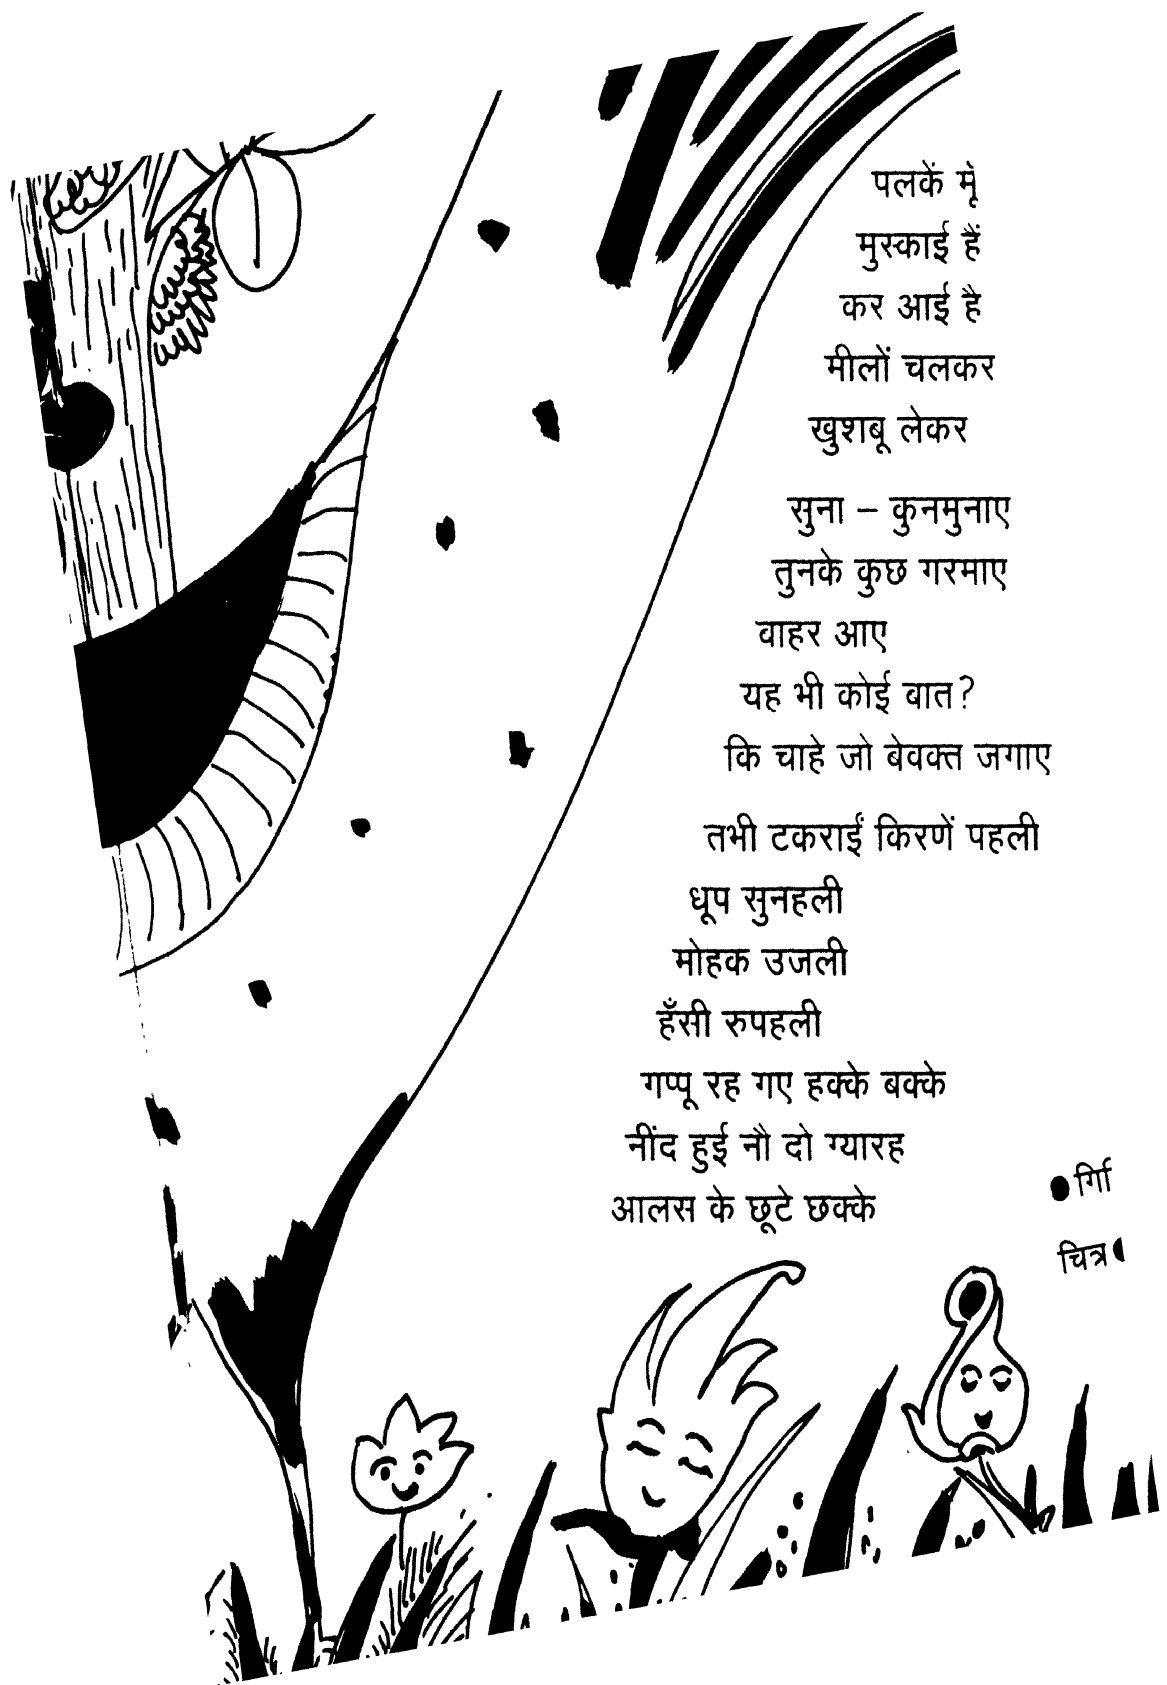 पलकें
मुस्काई हैं
कर आई है
मीलों चलकर
खुशबू लेकर
सुना – कुनमुनाए
तुनके कुछ गरमाए
वाहर आए
यह भी कोई बात?
कि चाहे जो बेवक्त जगाए
तभी टकराईं किरणें पहली
धूप सुनहली
मोहक उजली
हँसी रुपहली
गप्पू रह गए हक्के बक्के
नींद हुई नौ दो ग्यारह
आलस के छूटे छक्के
चित्र